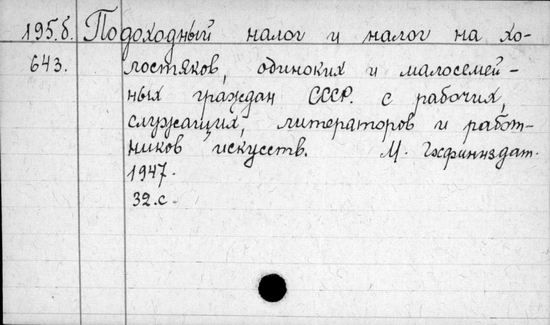 195.б. Подоходный налог и налог на хо-
643. лостяков, одиноких и малосемей-
ных граждан СССР. с рабочих,
служащих, литераторов и работ-
ников искусств. М. Гхфиннздат.
1947.
32.с.